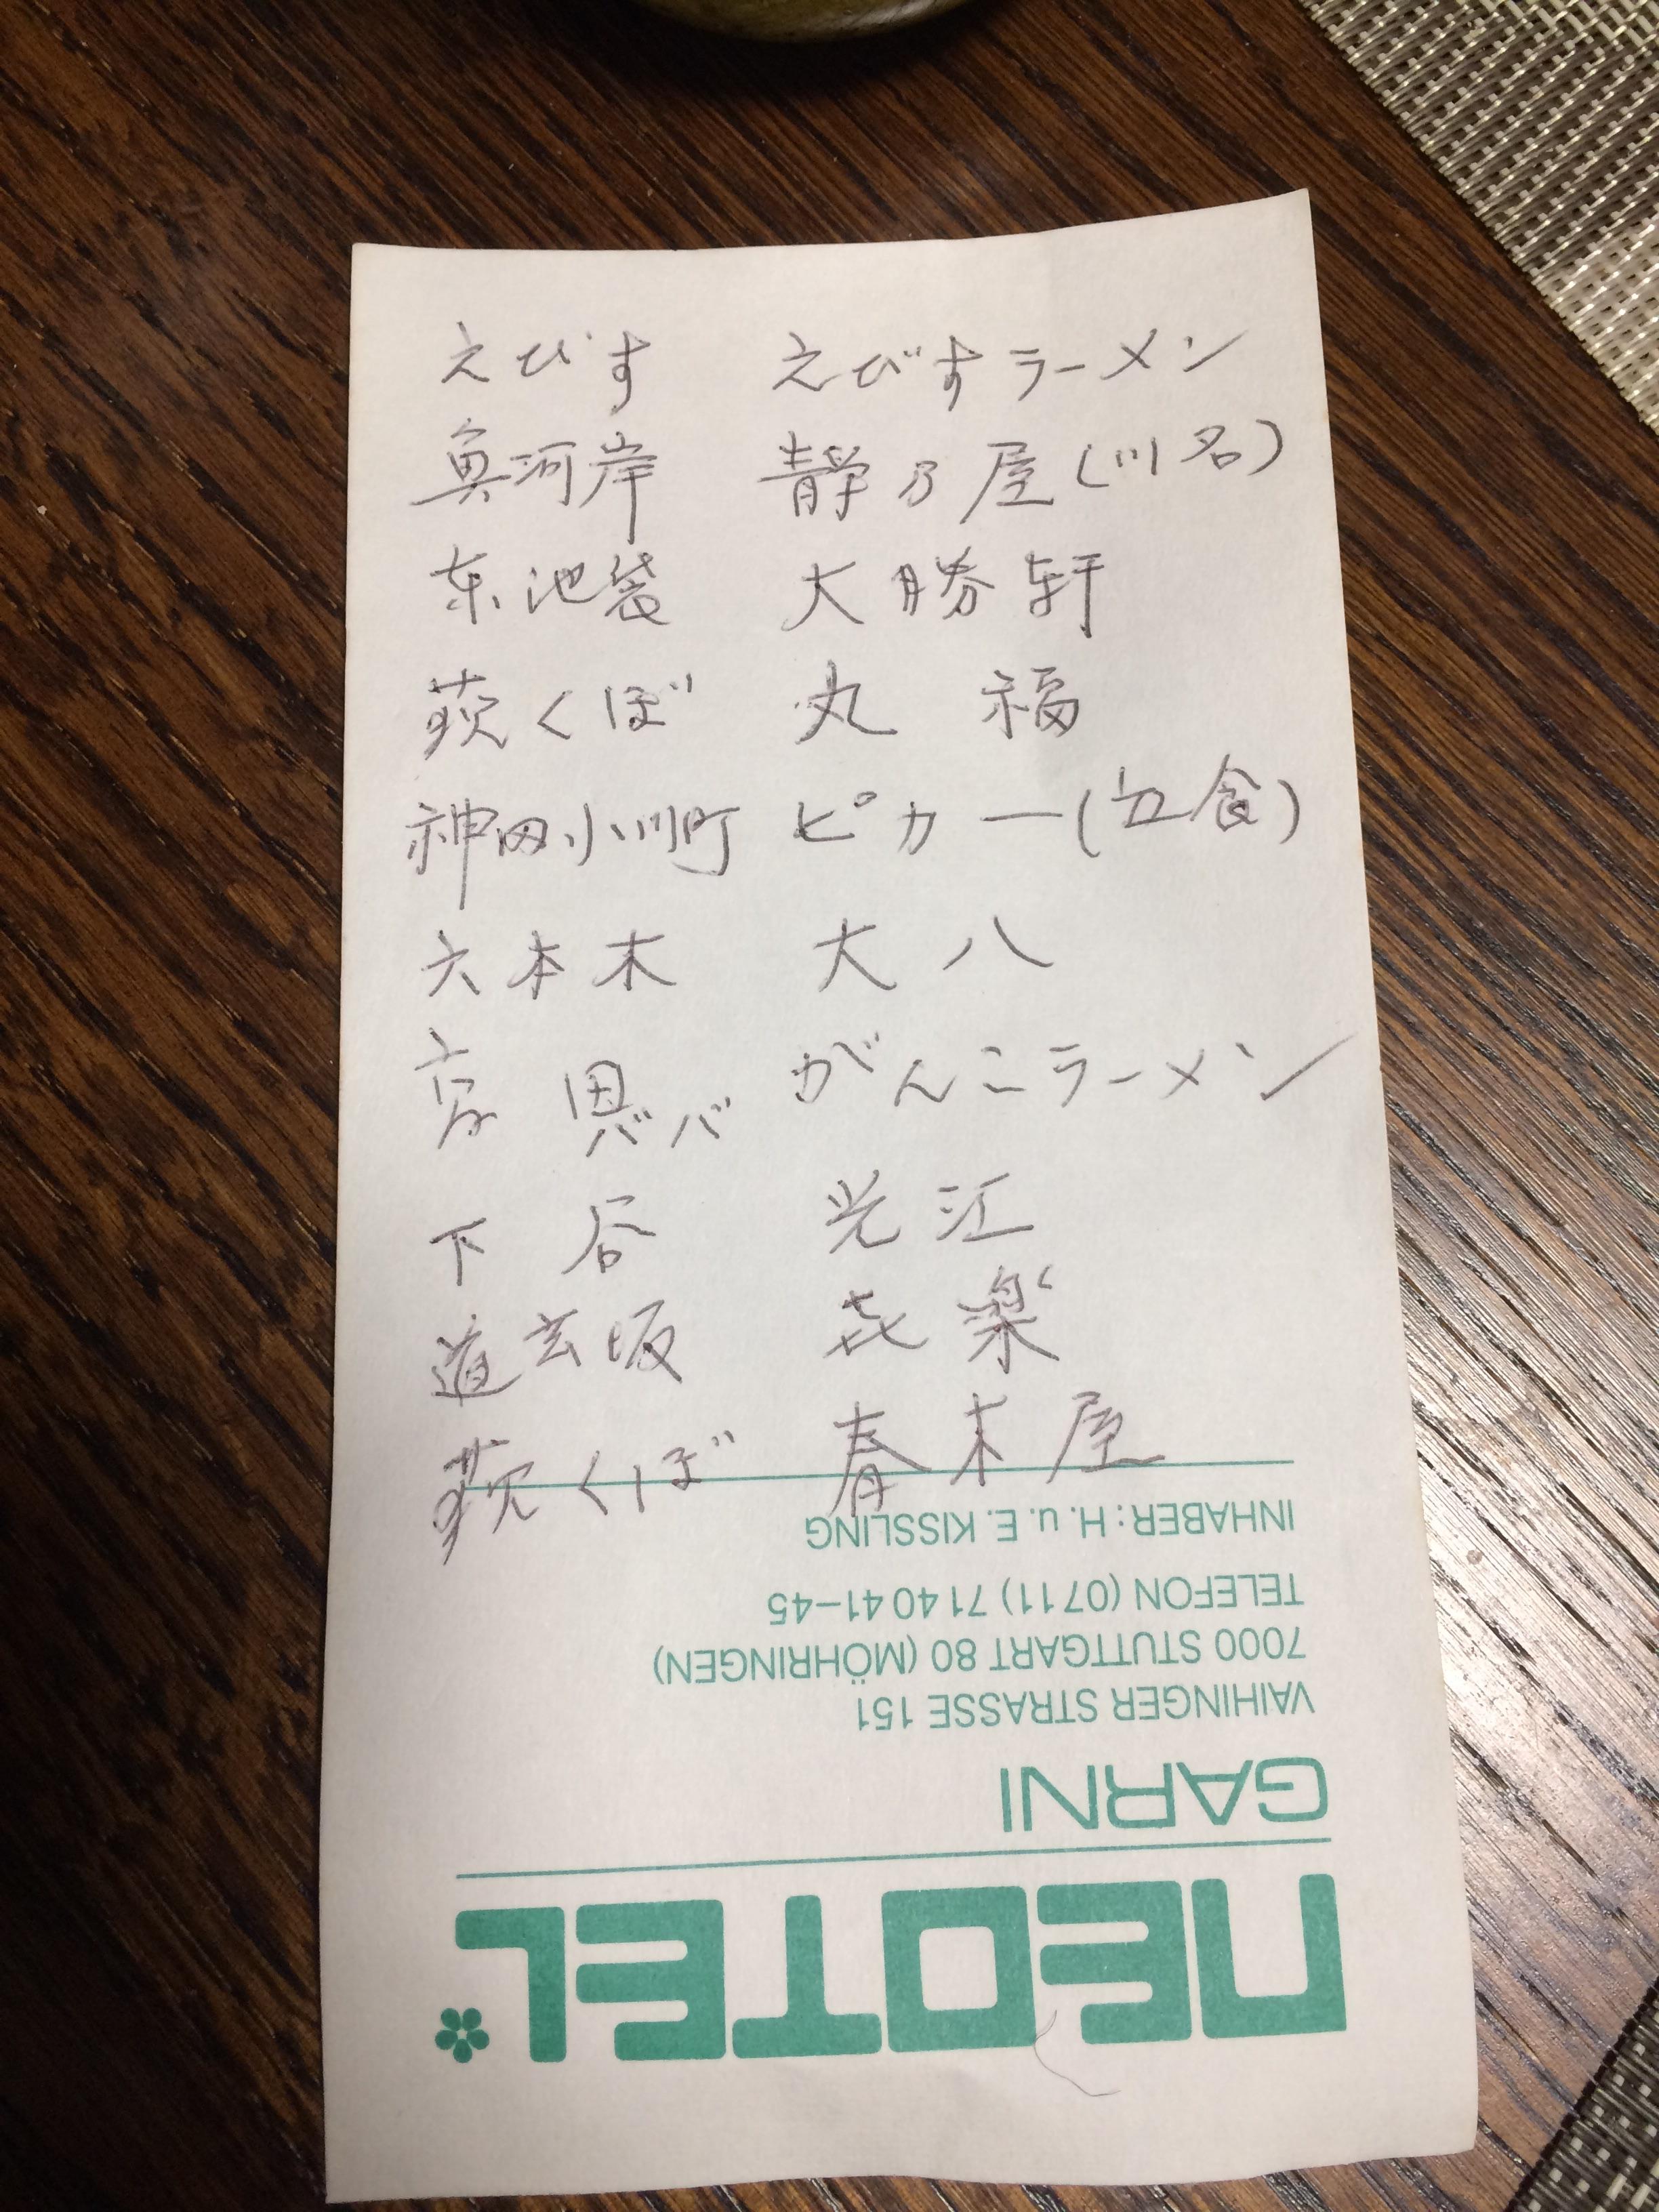 えびす えびすラーメン
魚河岸 静乃屋(川名)
东池袋 大勝軒
荻くぼ 丸福
神田小川町 ピカ一(立食)
六本木 大八
ババ がんこラーメン
下谷 光江
道玄坂 喜楽
荻くぼ 春木屋
INHABER: H. u. E. KISSLING
TELEFON (0711) 7140 41–45
7000 STUTTGART 80 (MÖHRINGEN)
VAIHINGER STRASSE 151
GARNI
NEOTEL